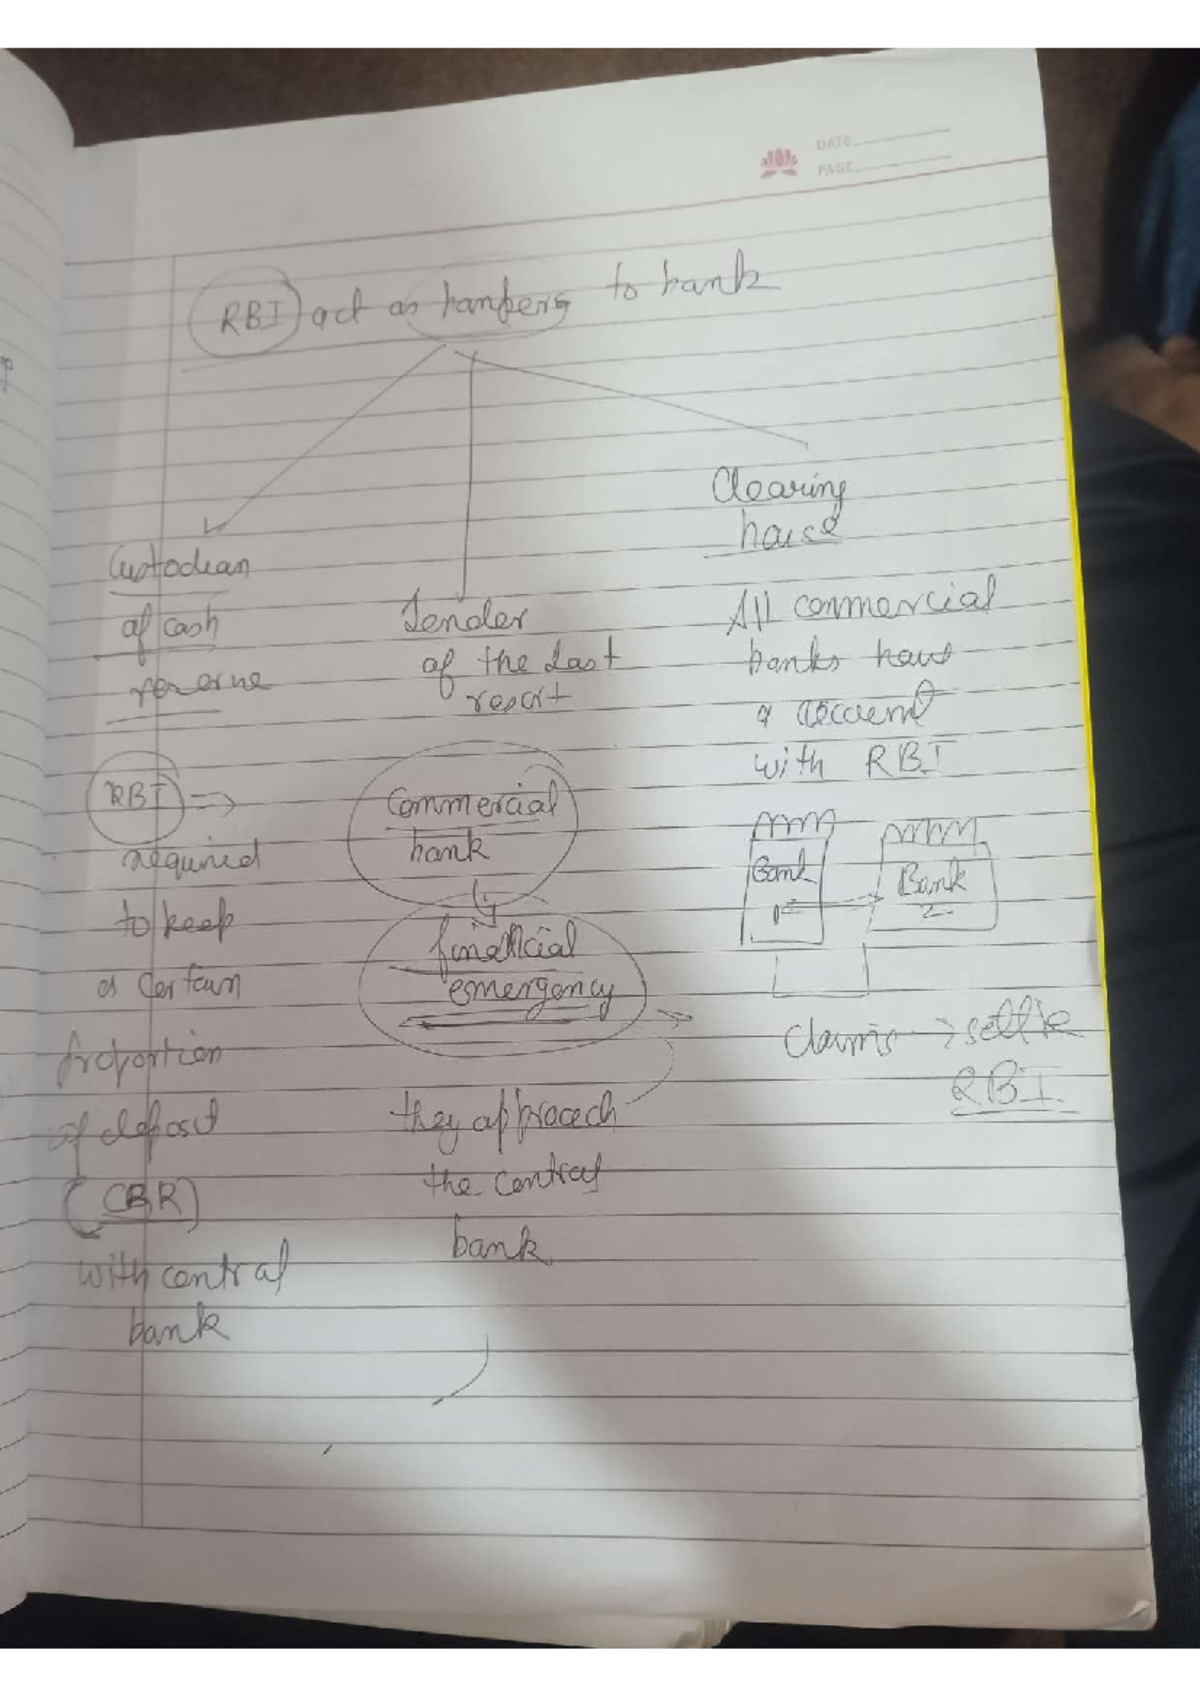 DATE
PAGE
RBI act as bankers to bank
Custodean
of cash
reserve
RBI =>
required
to keep
a certain
proportion
of deposit
(CRR)
with central
bank
Lender
of the Last
resort
Commercial
bank
financial
emergency
they approach
the central
bank
Clearing
house
All commercial
banks have
a account
with RBI
Bank
1
Bank
2
Claims → settle
RBI